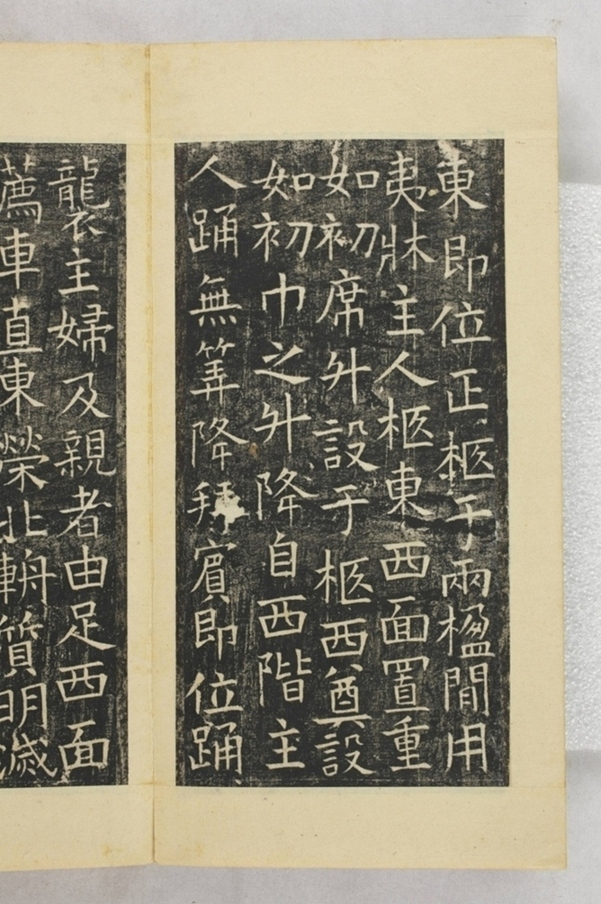 東即位正柩于兩楹閒用
夷牀主人柩東西面置重
如初席升設于柩西奠設
如初巾之升降自西階主
人踊無筭降拜賓即位踊
襲主婦及親者由足西面
薦車直東榮北輈質明滅